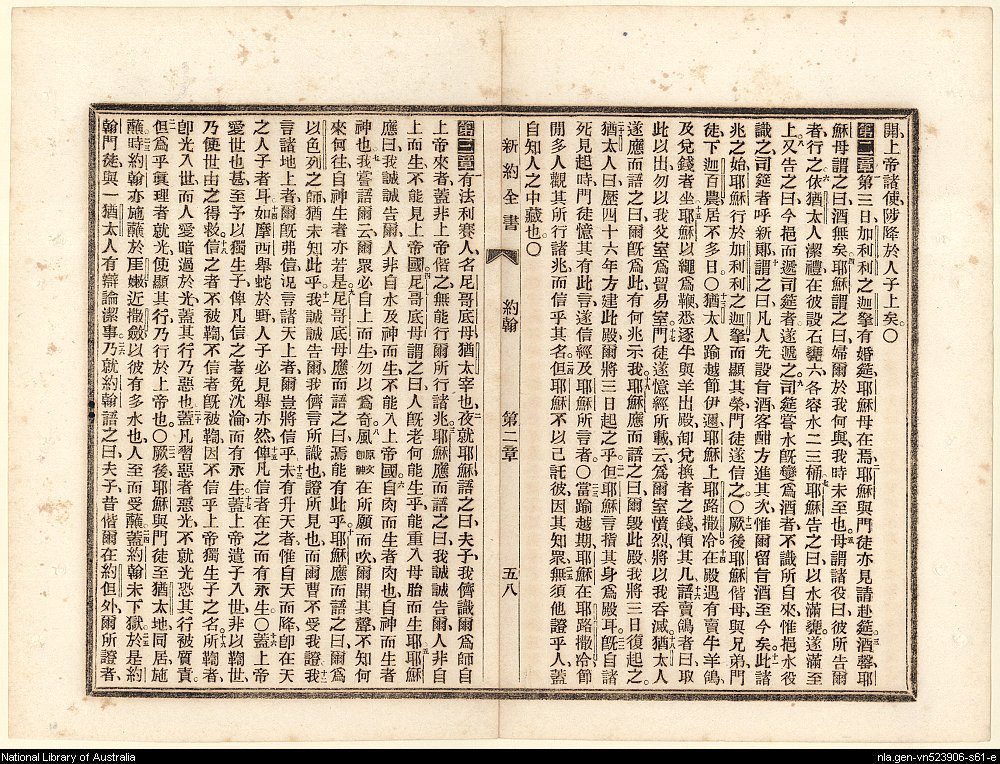 開上帝諸使陟降於人子上矣○
第二章第三日加利利之迦拏有婚筵耶穌母在焉耶穌與門徒亦見請赴筵酒罄耶
穌母謂之曰酒無矣耶穌謂之曰婦爾於我何與我時未至也母謂諸役曰彼所告爾
者行之依猶太人潔禮在彼設石甕六各容水二三桶耶穌告之曰以水滿甕遂滿至
上又告之曰今挹而遞司筵者遂遞之司筵嘗水旣變爲酒者不識所自來惟挹水役
識之司筵者呼新郎謂之曰凡人先設旨酒客酣方進其次惟爾留旨酒至今矣此諸
兆之始耶穌行於加利利之迦拏而顯其榮門徒遂信之○厥後耶穌偕母與兄弟門
徒下迦百農居不多日○猶太人踰越節伊邇耶穌上耶路撒冷在殿遇有賣牛羊鴿
及兌錢者坐耶穌以繩爲鞭悉逐牛與羊出殿卸兌換者之錢傾其几語賣鴿者曰取
此以出勿以我父室爲貿易室門徒遂憶經所載云爲爾室憤烈將以我吞滅猶太人
遂應而語之曰爾旣爲此有何兆示我耶穌應而語之曰爾毀此殿我將三日復起之
猶太人曰歷四十六年方建此殿爾將三日起之乎但耶穌言指其身爲殿耳旣自諸
死見起時門徒憶其有此言遂信經及耶穌所言者○當踰越期耶穌在耶路撒冷節
間多人觀其所行諸兆而信乎其名但耶穌不以己託彼因其知眾無須他證乎人蓋
自知人之中藏也○
新約全書 約翰 第二章 五八
第三章有法利賽人名尼哥底母猶太宰也夜就耶穌語之曰夫子我儕識爾爲師自
上帝來者蓋非上帝偕之無能行爾所行諸兆耶穌應而語之曰我誠誠告爾人非自
上而生不能見上帝國尼哥底母謂之曰人旣老何能生乎能重入母胎而生耶耶穌
應曰我誠誠告爾人非自水及神而生不能入上帝國自肉而生者肉也自神而生者
神也我嘗語爾云爾眾必自上而生勿以爲奇風原文卽神在所願而吹爾聞其聲不知何
來何往自神生者亦若是尼哥底母應而語之曰焉能有此乎耶穌應而語之曰爾爲
以色列之師猶未知此乎我誠誠告爾我儕言所識也證所見也而爾曹不受我證我
言諸地上者爾旣弗信況言諸天上者爾豈將信乎未有升天者惟自天而降卽在天
之人子者耳如摩西舉蛇於野人子必見舉亦然俾凡信者在之而有永生○蓋上帝
愛世也甚至予以獨生子俾凡信之者免沈淪而有永生蓋上帝遣子入世非以鞫世
乃使世由之得救信之者不被鞫不信者旣被鞫因不信乎上帝獨生子之名所鞫者
卽光入世而人愛暗過於光蓋其行乃惡也蓋凡習惡者惡光不就光恐其行被質責
但爲乎眞理者就光使顯其行乃行於上帝也○厥後耶穌與門徒至猶太地同居施
蘸時約翰亦施蘸於厓嫩近撒斂以彼有多水也人至而受蘸蓋約翰未下獄於是約
翰門徒與一猶太人有辯論潔事乃就約翰語之曰夫子昔偕爾在約但外爾所證者
National Library of Australia
nla.gen-vn523906-s61-e